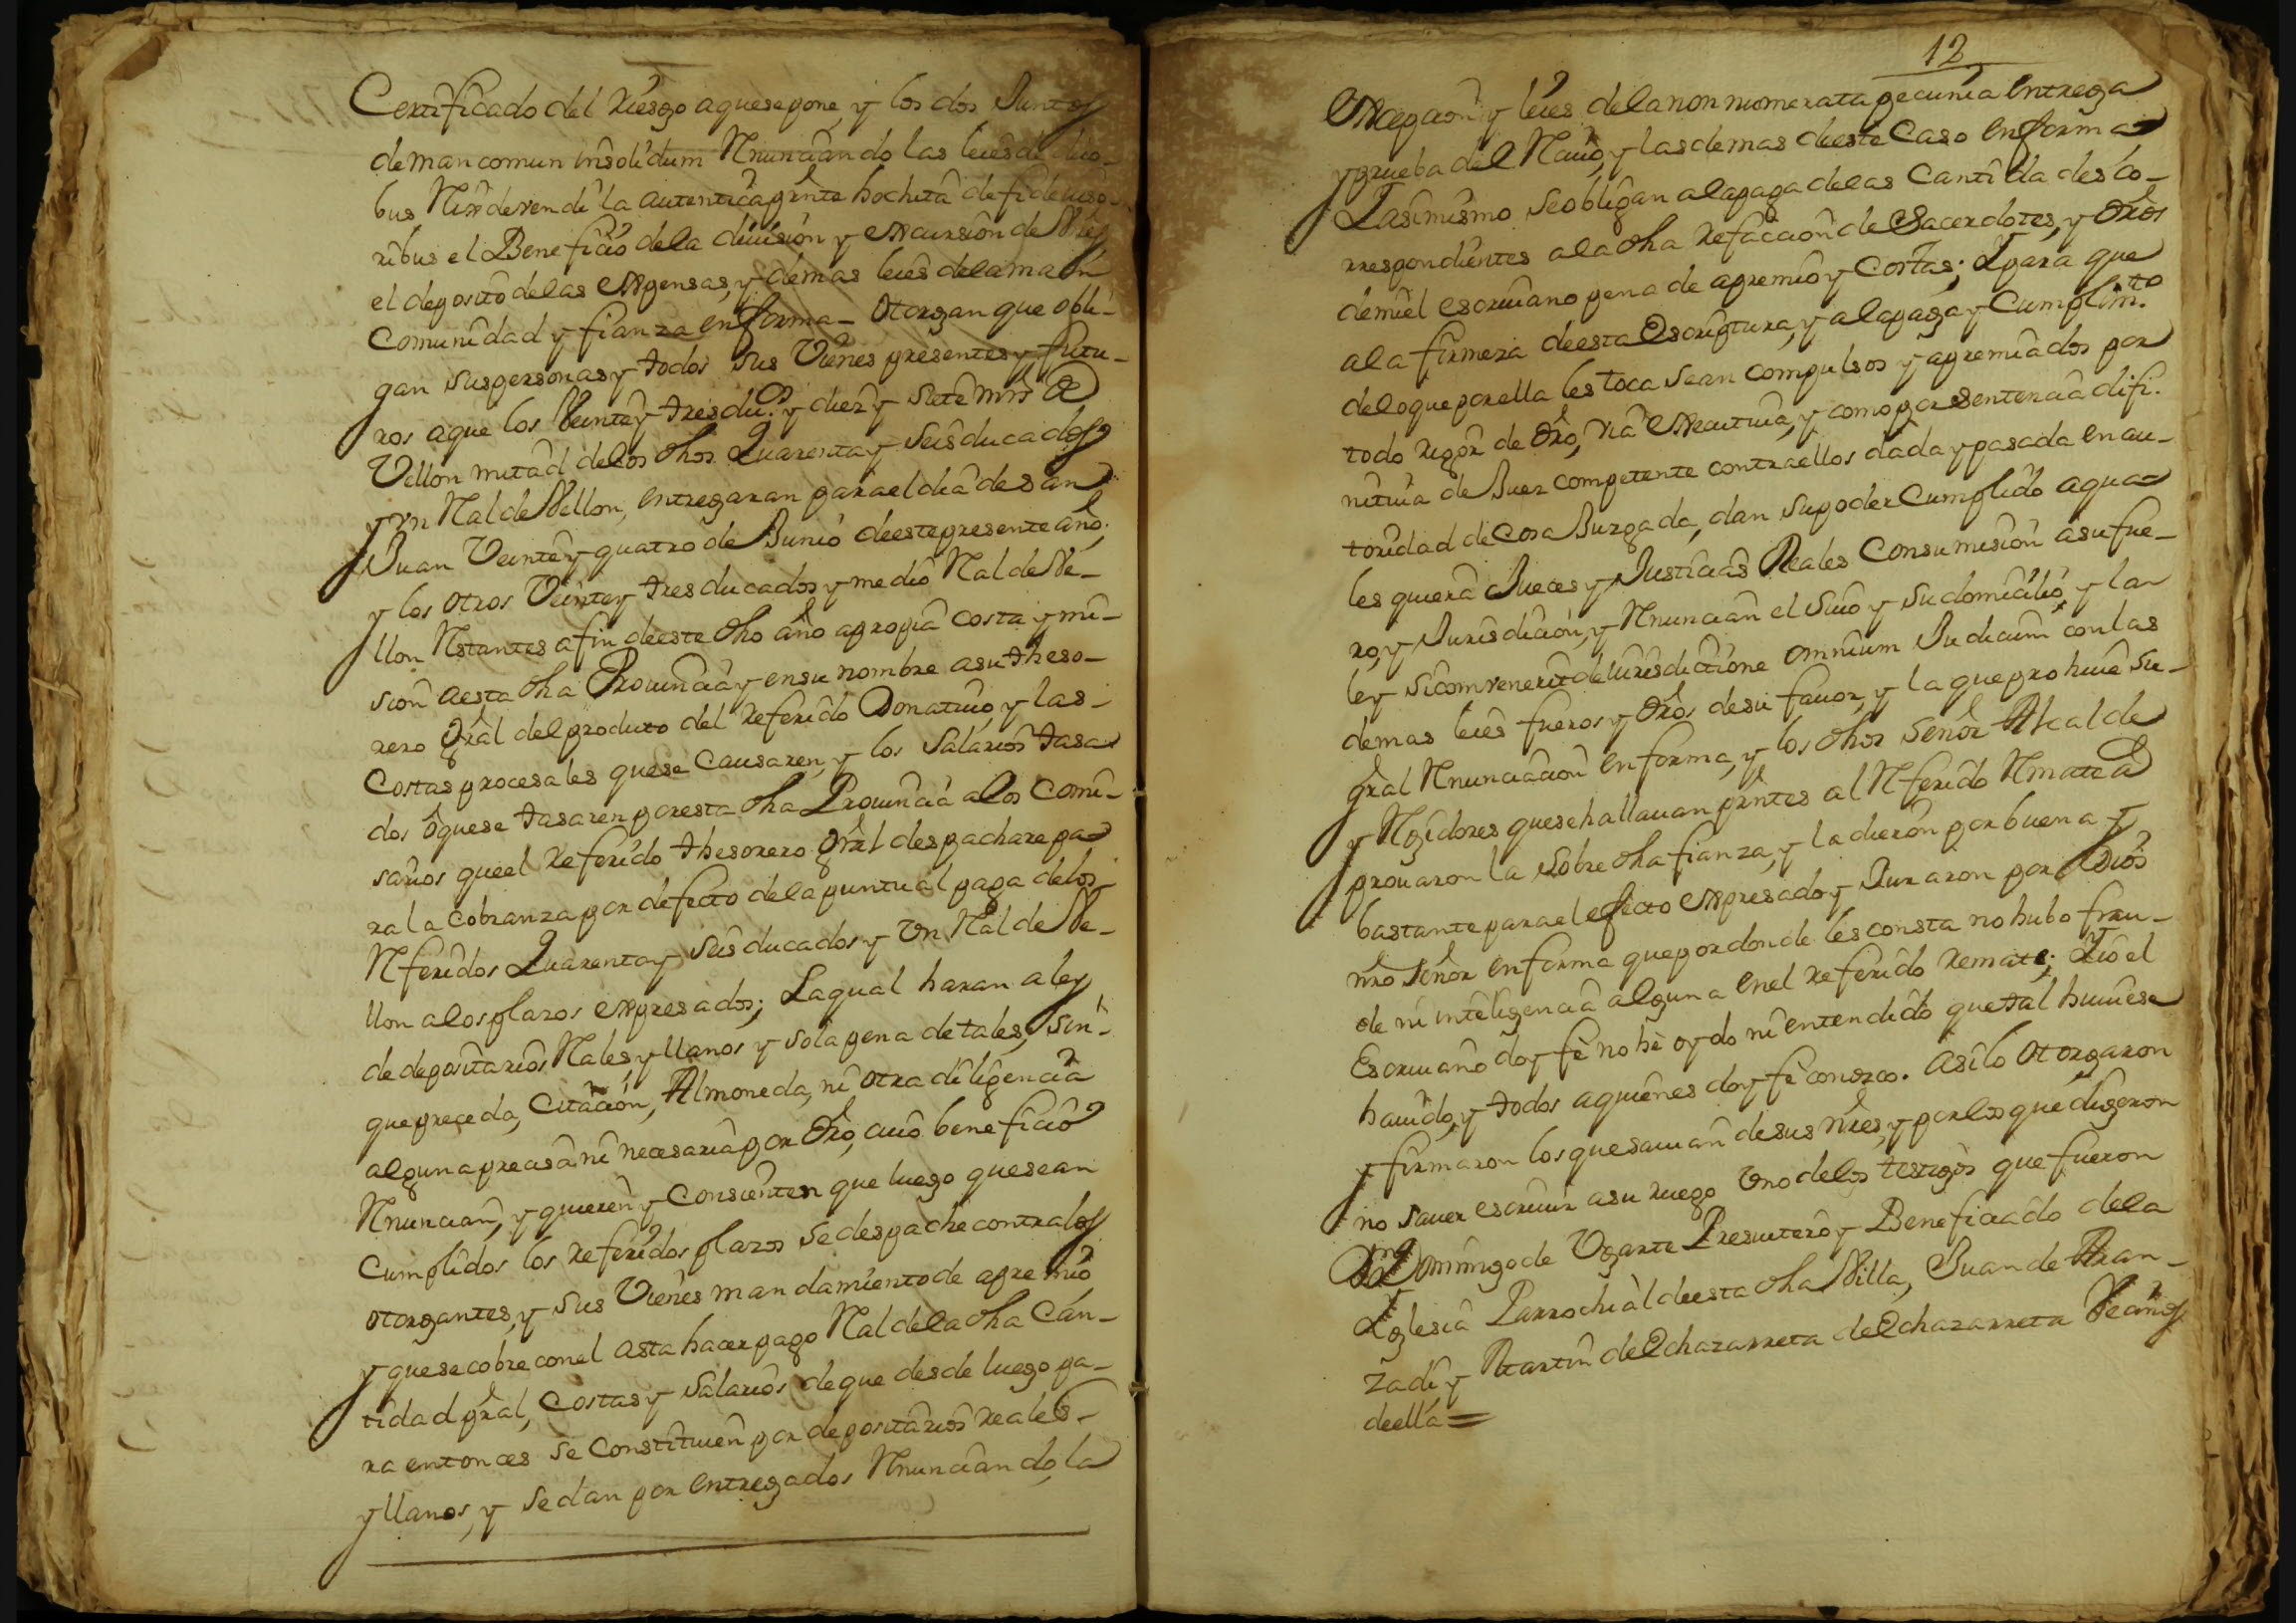 Certificado del riesgo aquesepone, y los dos Juntos
de man comun insolidum Renunciando las leies de duo-
bus Reis devendi la autentica presente hochita de fideiuso-
ribus el Beneficio dela division y excursion de Vienes
el deposito delas expensas, y demas leies dela man
Comunidad y fianza en forma - Otorgan que obli-
gan sus personas y todos sus Vienes presentes y futu-
ros aque los Veinte y tres du.os y diez y siete mrs de
Vellon mitad delos dhos Quarenta y Seis ducados
y vn Real de Vellon, entregaran para el dia de san
Juan Veinte y quatro de Junio deeste presente año;
y los otros Veinte y tres ducados y medio Real de Ve-
llon Restantes a fin deeste dho año apropia costa y mi-
sion aesta dha Provincia y ensu nombre asu theso-
rero Gral del produto del referido Donativo, y las
Costas procesales quese Causaren, y los Salarios tasa
dos o quese tasaren por esta dha Provincia a los Comi-
sarios queel referido thesorero Gral despachare pa
ra la cobranza por defecto dela puntual paga delos
Referidos Quarenta y Seis ducados y Vn Real de Ve-
llon alos plazos expresados; Laqual haran a ley
de depositarios Reales y llanos y sola pena de tales, Sin
que preceda, Citación, Almoneda, ni otra diligencia
alguna precisa ni necesaria por dro, cuio beneficio
Renuncian, y quieren y Consienten que luego quesean
Cumplidos los referidos plazos se despache contra los
otorgantes, y sus Vienes mandamiento de apremio
y quese cobre conel asta hacer pago Real dela dha Can-
tidad pral, Costas y Salarios deque desde luego pa-
ra entonces se Constituien por depositarios reales
y llanos, y se dan por entregados Renunciando, la
12
excepcion y leies dela non numerata pecunia entrega
y prueba del Recivo, y las demas deeste Caso en forma
Y asimismo se obligan a la paga delas Cantidades Co-
rrespondientes a la dha refaccion de Sacerdotes, y dros
demi el escrivano pena de apremio y Costas; Y para que
a la firmeza deesta Escriptura, y a la paga y Cumplim.to
delo que por ella les toca sean compulsos y apremiados por
todo rigor de dro, via executiva, y como por sentencia difi-
nitiva de Juez competente contra ellos dada y pasada en au-
toridad de Cosa Juzgada, dan su poder Cumplido aqua
les quiera Jueces y Justicias Reales Consumision asu fue-
ro, y Jurisdicion, y Renuncian el suio y su domicilio, y la
ley sicomvenerit de Iurisdictione omnium Judicum con las
demas leies fueros y dros desu favor, y la que prohive su
gral Renunciacion en forma, y los dhos Señor Alcalde
y Regidores quese hallavan presentes al Referido Remate a
provaron la sobre dha fianza, y la dieron por buena y
bastante para el efecto expresado y Juraron por Dios
nro Señor en forma que por donde les consta no hubo frau-
de ni inteligencia alguna en el referido remate; Y io el
Escrivano doy fe no he oydo ni entendido que tal huviese
havido, y todos aquienes doy fe conozco. Asilo Otorgaron
y firmaron los que savian de sus nres, y por los que digeron
no saver escrivir asu ruego Vno delos testigos que fueron
Dn Domingo de Vgarte Presvitero y Beneficiado dela
Yglesia Parrochial deesta dha Villa, Juan de Aran-
zadi y Martin de Echazarreta de Echazarreta Vecinos
deella =